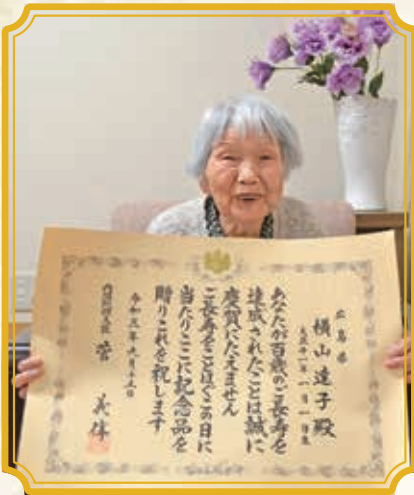 広島県
横山達子殿
大正十一年一月一日生
あなたが百歳のご長寿を
達成されたことは誠に
慶賀にたえません
ご長寿をことほぐこの日に
当たりここに記念品を
贈りこれを祝します
令和三年九月十五日
内閣総理大臣 菅 義偉